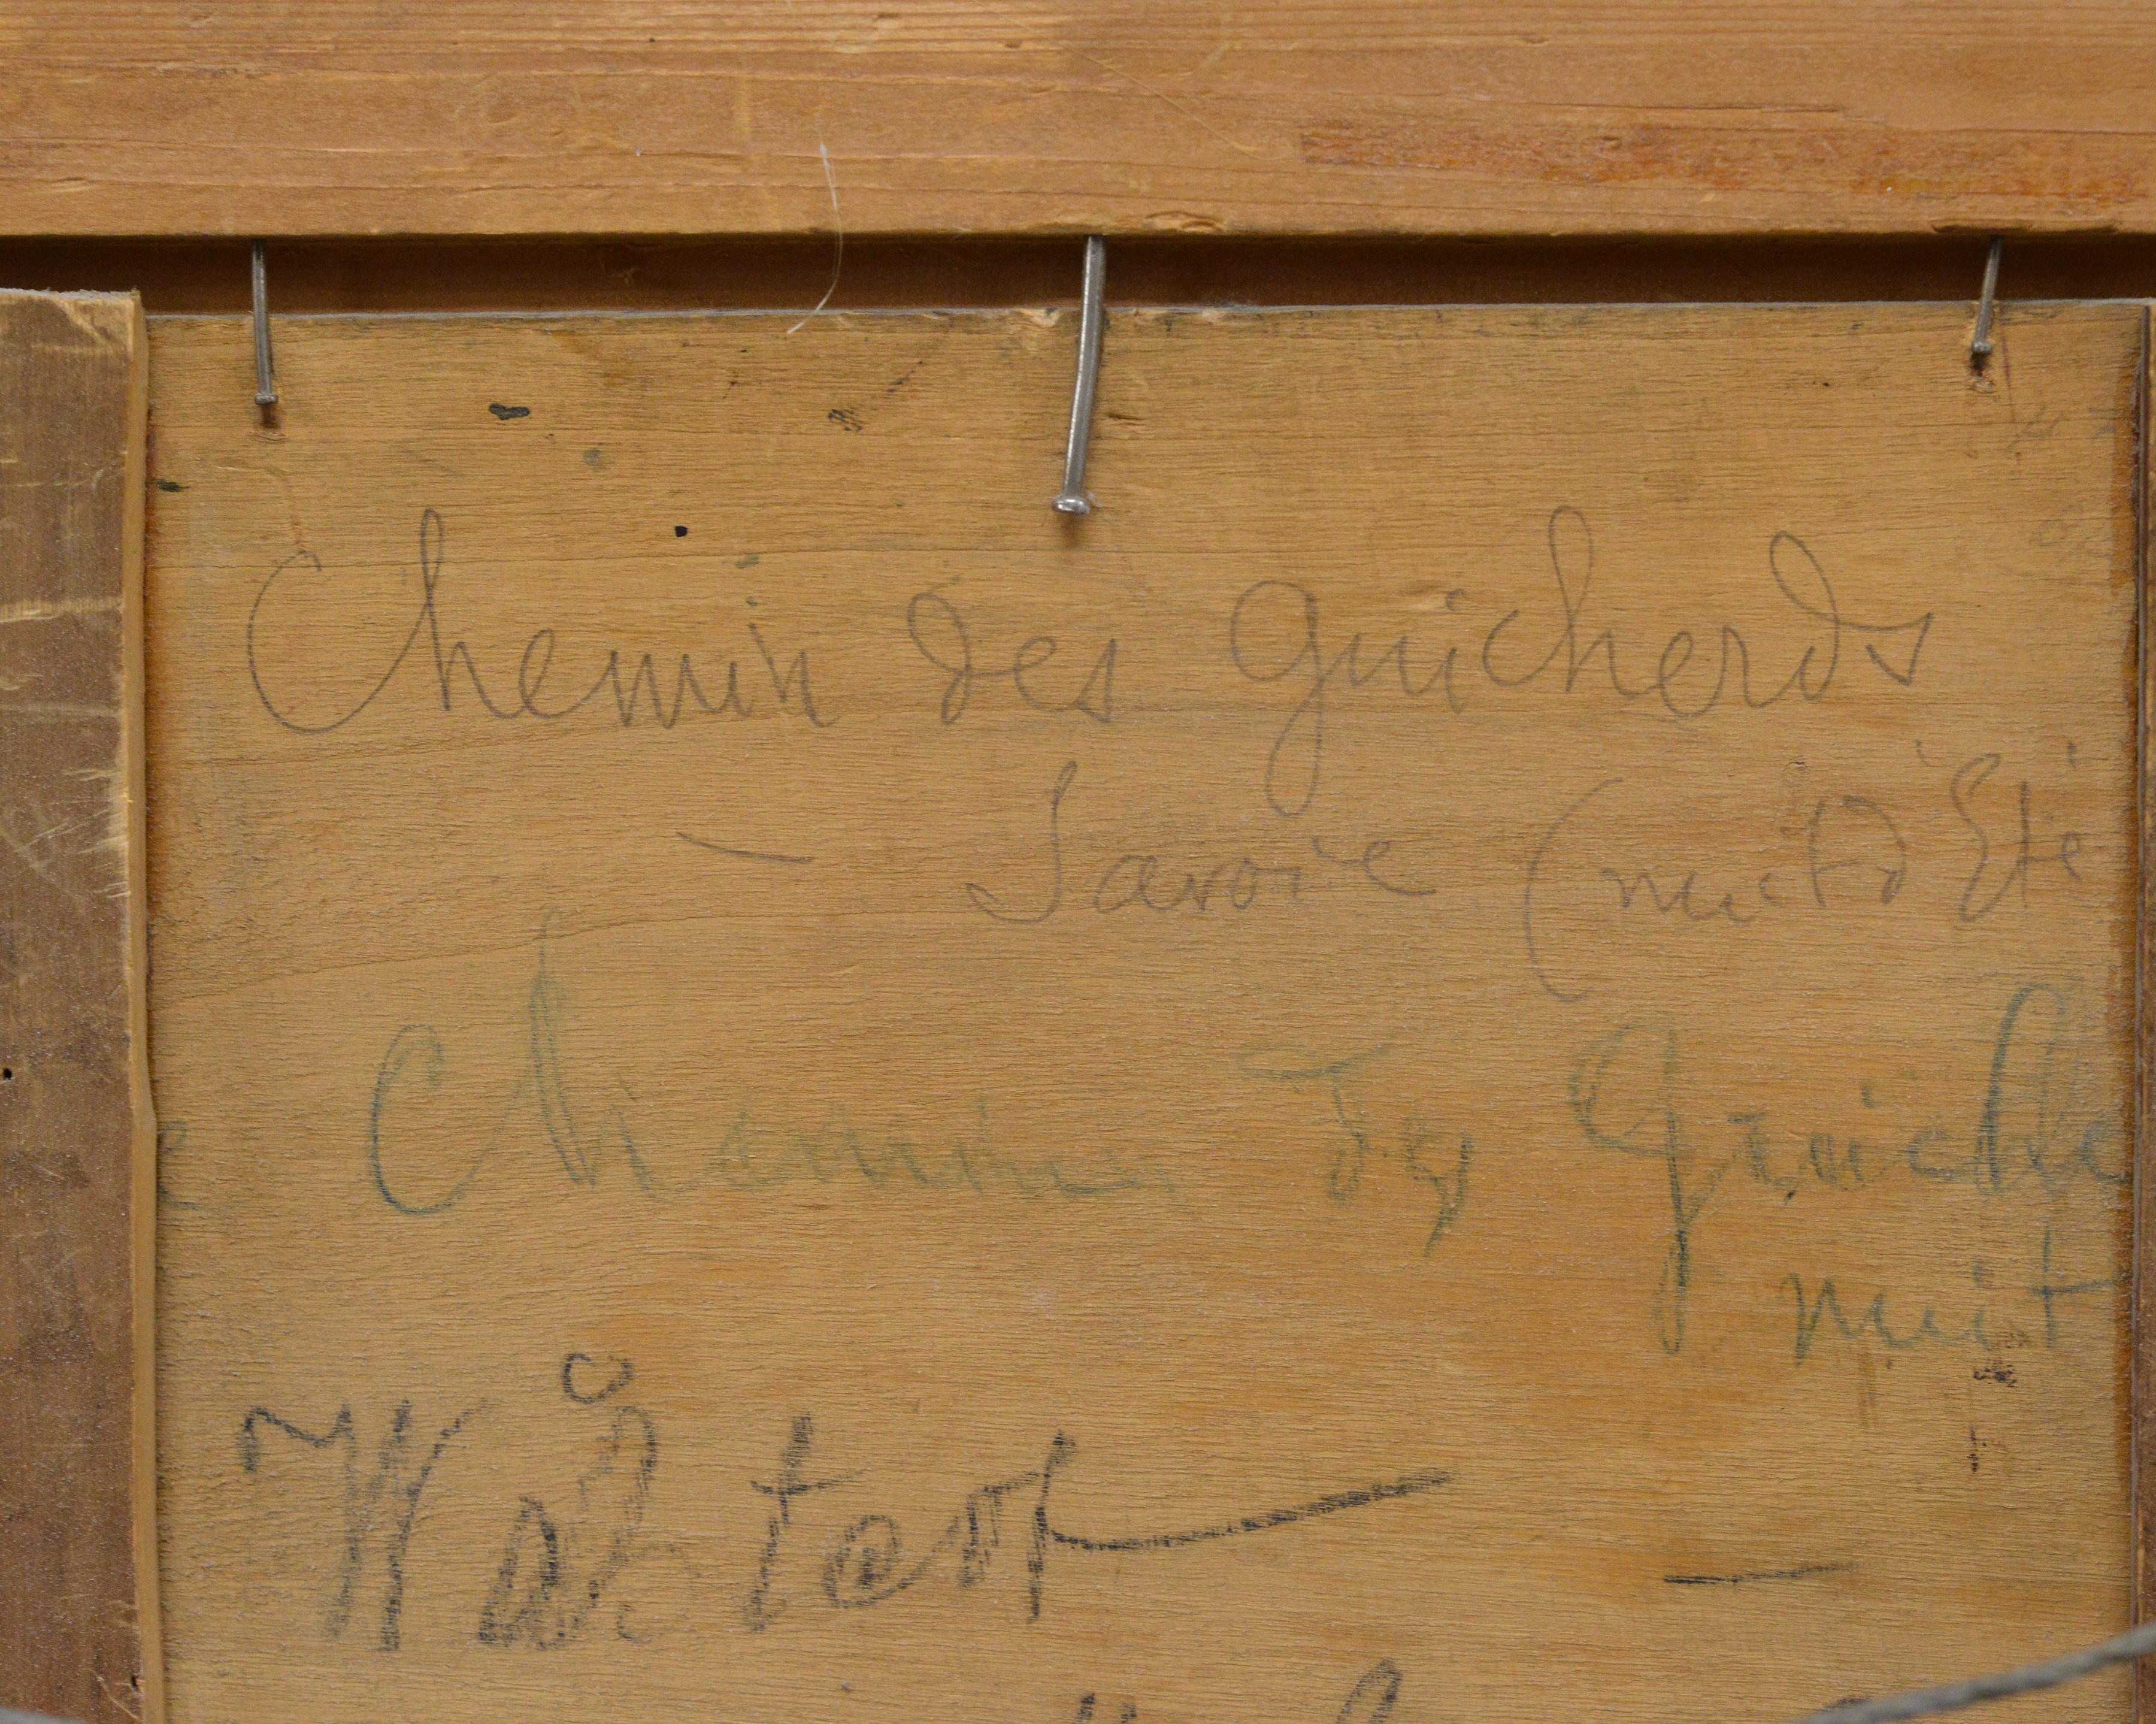 Chemin des Guicherds
— Savoie (nuit d'Eté
Chemin des Guiche
nuit
—